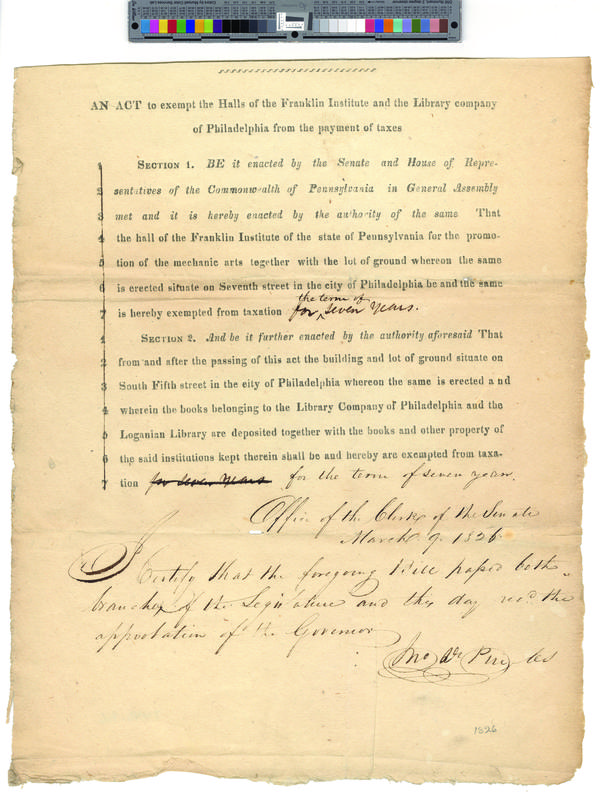 AN ACT to exempt the Halls of the Franklin Institute and the Library company
of Philadelphia from the payment of taxes
1 SECTION 1. BE it enacted by the Senate and House of Repre-
2 sentatives of the Commonwealth of Pennsylvania in General Assembly
3 met and it is hereby enacted by the authority of the same That
4 the hall of the Franklin Institute of the state of Pennsylvania for the promo-
5 tion of the mechanic arts together with the lot of ground whereon the same
6 is erected situate on Seventh street in the city of Philadelphia be and the same
the term of
7 is hereby exempted from taxation for seven years.
1 SECTION 2. And be it further enacted by the authority aforesaid That
2 from and after the passing of this act the building and lot of ground situate on
3 South Fifth street in the city of Philadelphia whereon the same is erected and
4 wherein the books belonging to the Library Company of Philadelphia and the
5 Loganian Library are deposited together with the books and other property of
6 the said institutions kept therein shall be and hereby are exempted from taxa-
7 tion for seven years for the term of seven years.
Office of the Clerk of the Senate
March 9. 1826
I Certify that the foregoing Bill passed both
branches of the Legislature and this day recd. the
approbation of the Governor
Jno De
1826